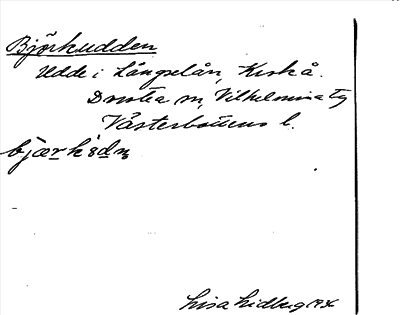 Björkudden
Udde i Långselån, Kirkå.
Dorotea sn, Vilhelmina tg
Västerbottens l.
bjærkədn̥
Lisa Lidberg 1936